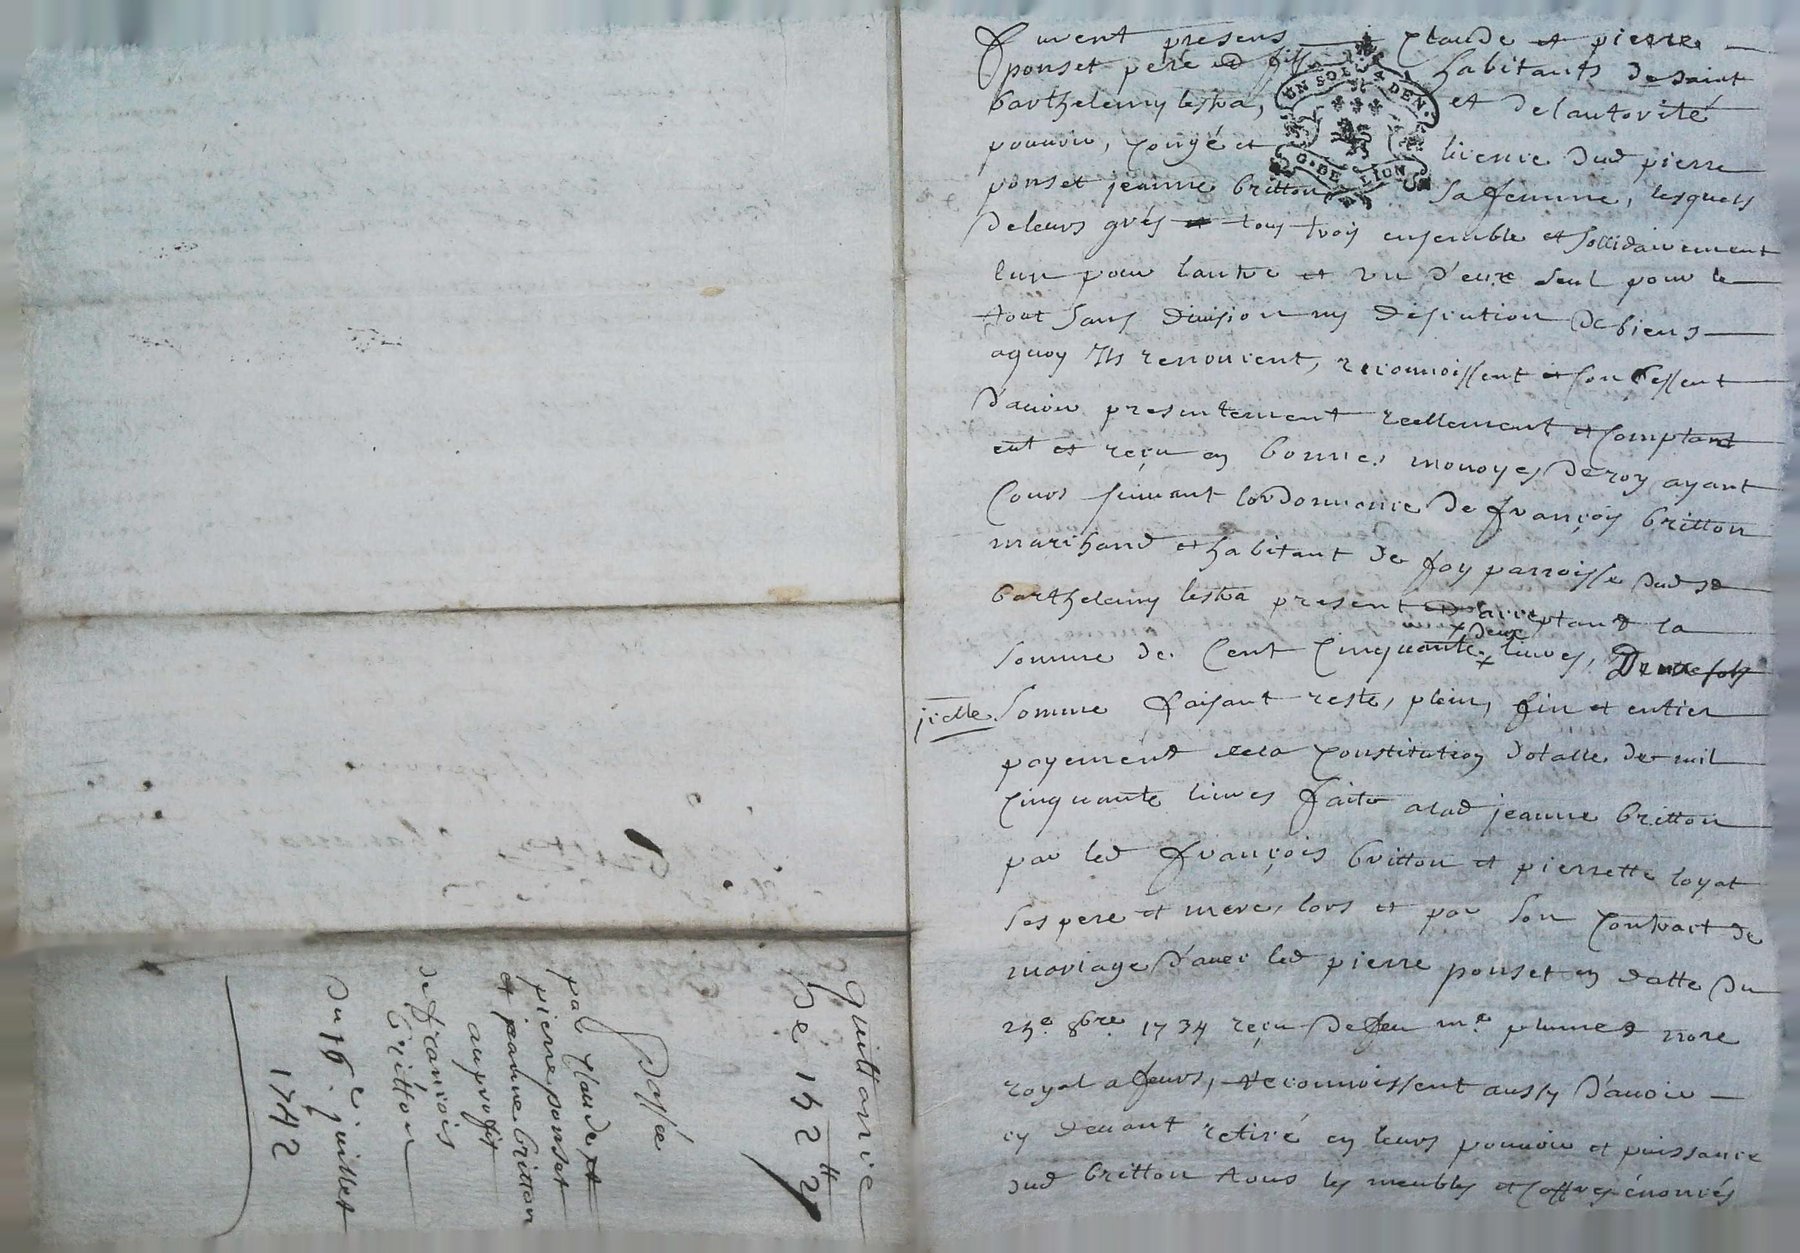 quittance
de 152# 2
passée
par claude et
pierre ponset
et jeanne britton
au profit
de françois
britton
du 16e juillet
1742
furent presens claude et pierre
ponset pere et fils habitants de saint
barthelemy lestra, et de lautorité
pouvoir, congé et licence dud pierre
ponset jeanne britton sa femme, lesquels
de leurs grés tous trois ensemble et sollidairement
lun pour lautre et un d'eux seul pour le
tout sans division ny discution de biens
aquoy ils renoncent, reconnoissent et confessent
d'avoir presentement reellement et comptant
eut et reçu en bonnes monoyes de roy ayant
cours suivant lordonnance de françois britton
marchand et habitant de foy parroisse dud st
barthelemy lestra present et acceptant la
somme de cent cinquante deux livres,
icelle somme faisant reste, plein, fin et entier
payement de la constitution dotalle de mil
cinquante livres faite alad jeanne britton
par led françois britton et pierrette loyat
ses pere et mere, lors et par son contract de
mariage d'avec led pierre ponset en datte du
25e 8bre 1734 reçu de feu me plumet nore
royal a feurs, reconnoissent aussy d'avoir
cy devant retiré en leurs pouvoir et puissance
dud britton tous les meubles et coffres énoncés
UN SOL
DEN.
G. DE LION